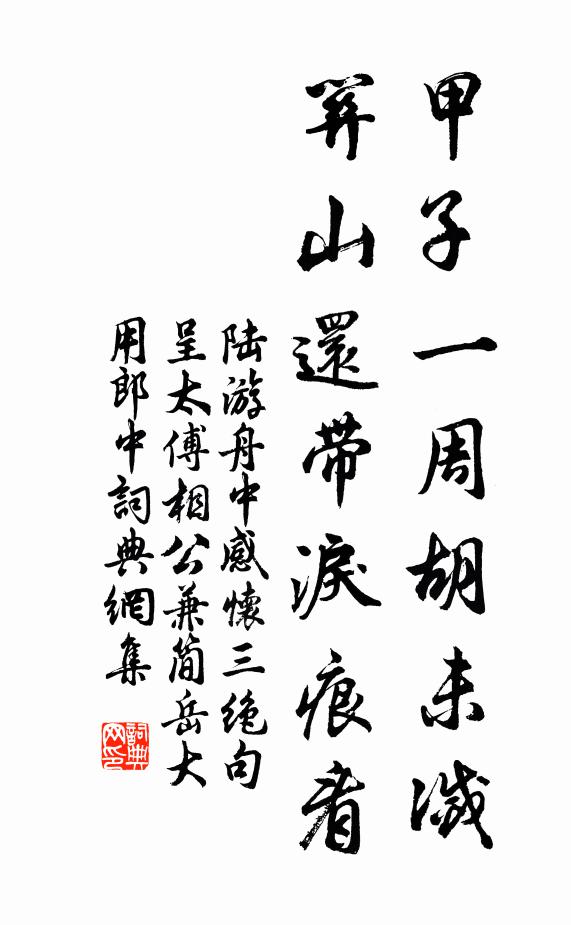 甲子一周胡未滅
關山還帶淚痕看
陸游舟中感懷三絕句
呈太傅相公兼簡岳大
用郎中詞典網集
詞典网印